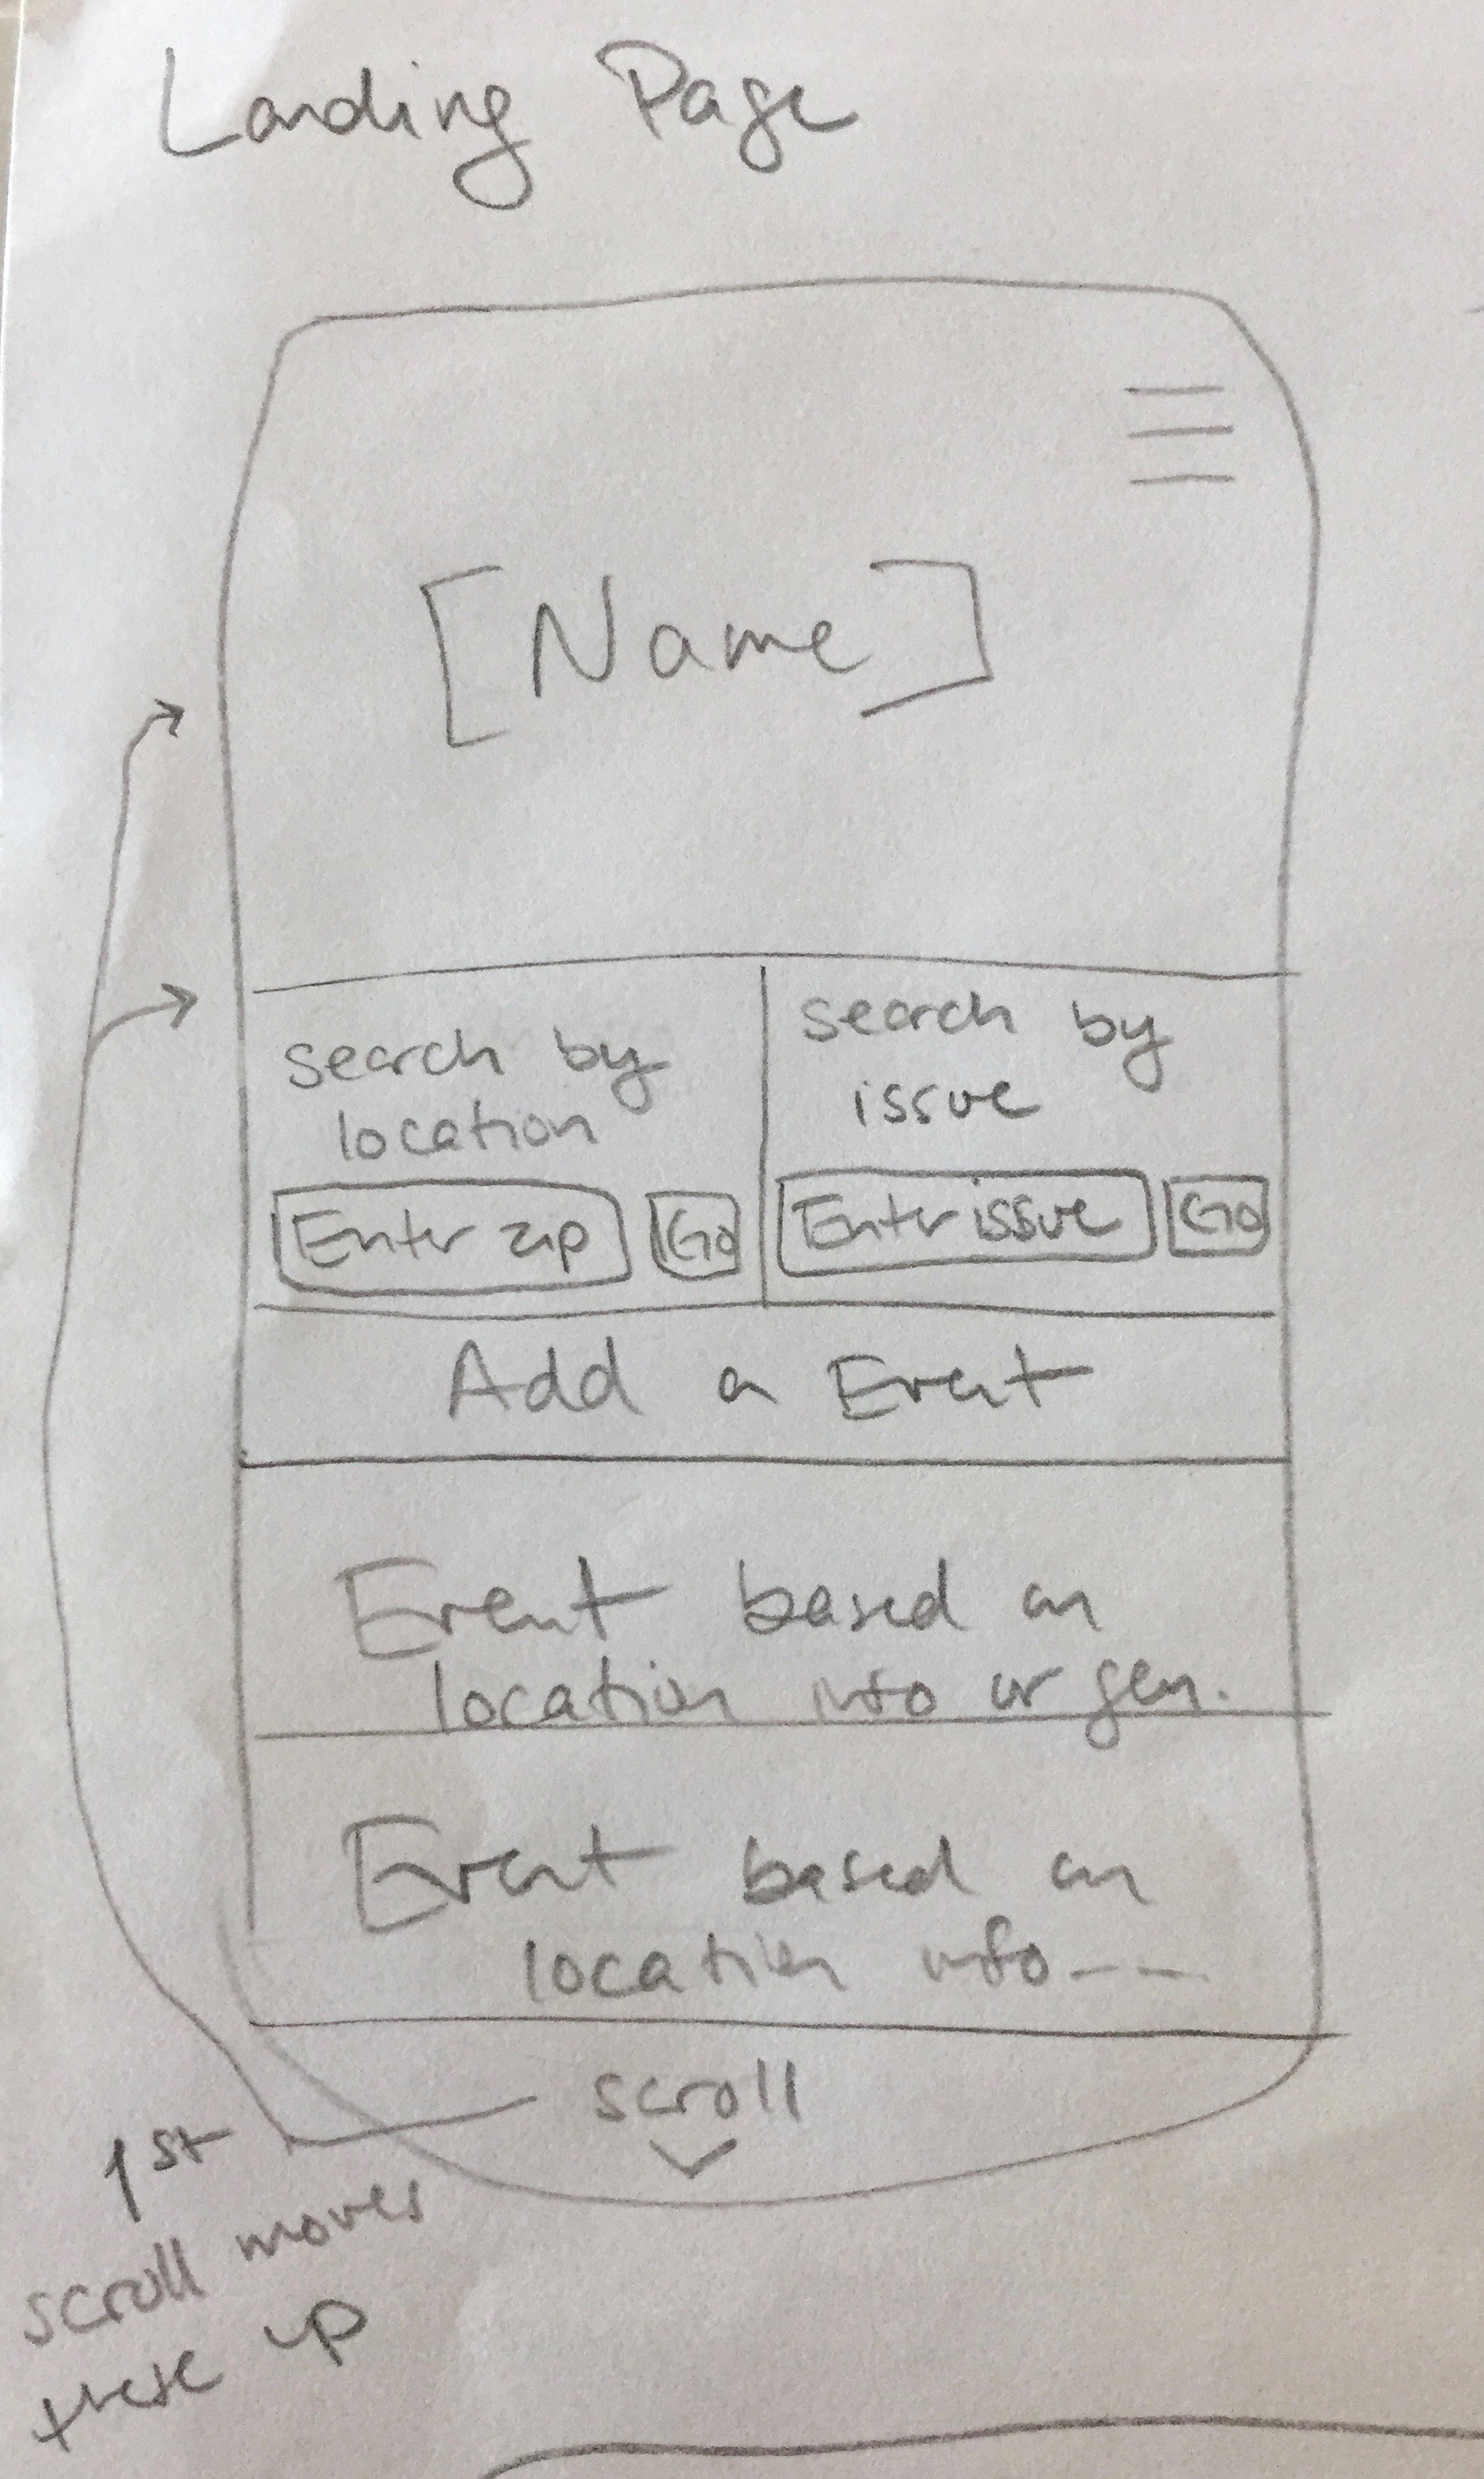 Landing Page
[Name]
search by
location
Enter zip
Go
search by
issue
Enter issue
Go
Add a Event
Event based on
location info or gen.
Event based on
location info---
scroll
1st
scroll moves
these up